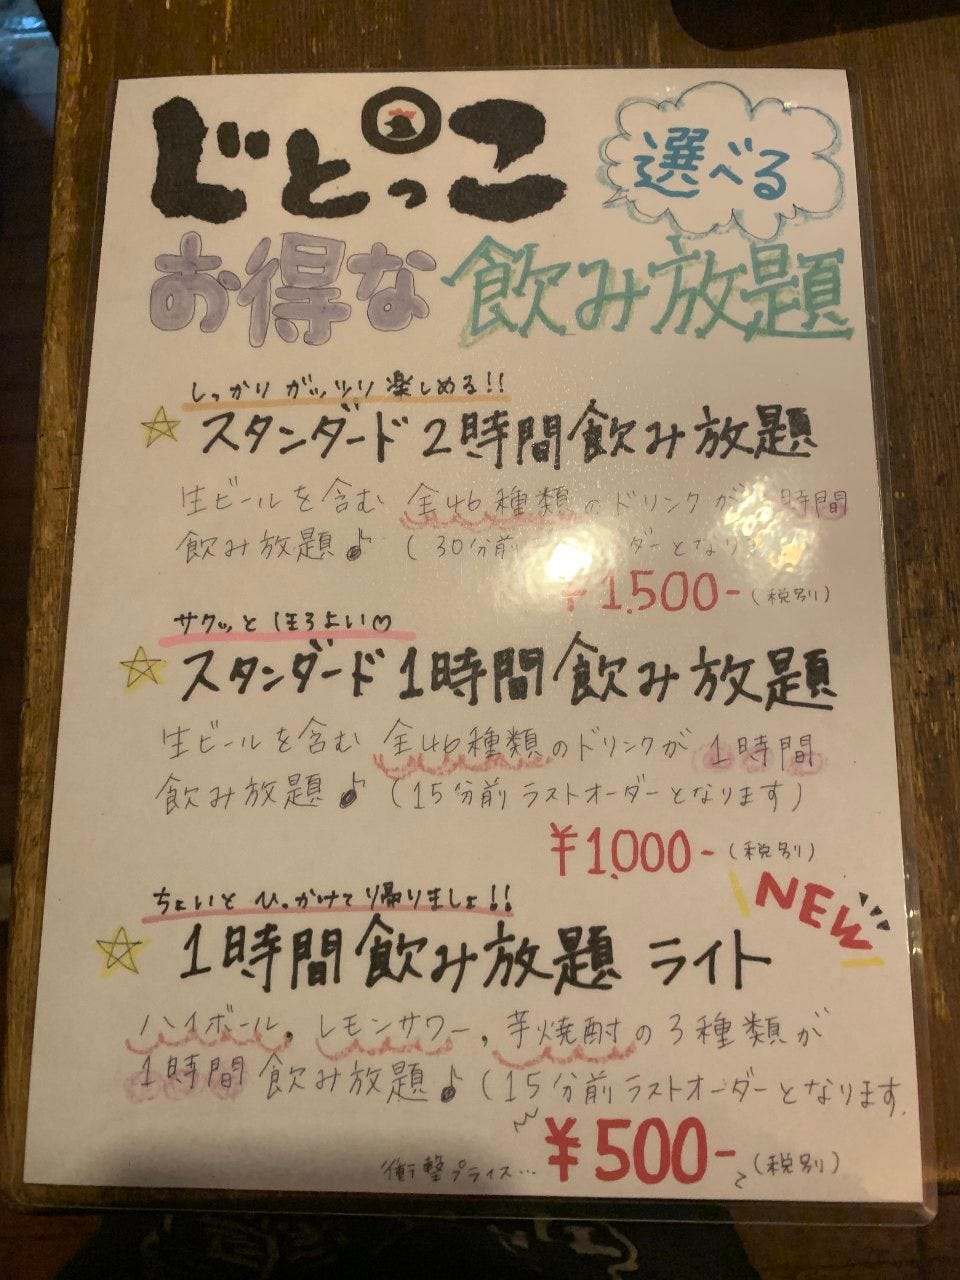 じとっこ
選べる
お得な 飲み放題
しっかり ガッツリ 楽しめる!!
☆ スタンダード 2時間飲み放題
生ビールを含む 全46種類のドリンクが 時間
飲み放題♪ (30分前 ダーとなり
¥1,500-(税別)
サクッと ほろよい♡
☆ スタンダード 1時間飲み放題
生ビールを含む 全46種類のドリンクが 1時間
飲み放題♪ (15分前ラストオーダーとなります)
¥1,000-(税別)
NEW
ちょいと ひっかけて帰りましょ!!
☆ 1時間飲み放題 ライト
ハイボール、レモンサワー、芋焼酎の3種類が
1時間飲み放題♪ (15分前ラストオーダーとなります。
衝撃プライス… ¥500-(税別)